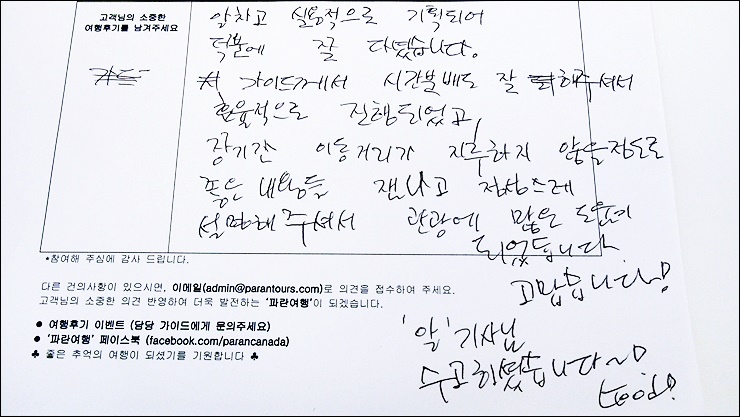 고객님의 소중한
여행후기를 남겨주세요
알차고 실용적으로 기획되어
덕분에 잘 다녔습니다.
가이드께서 시간분배도 잘 해주셔서
효율적으로 진행되었고,
장기간 이동거리가 지루하지 않을정도로
좋은 내용들 잼나고 정성스레
설명해 주셔서 관광에 많은 도움이
되었습니다.
고맙습니다!
*참여해 주심에 감사 드립니다.
다른 건의사항이 있으시면, 이메일(admin@parantours.com)로 의견을 접수하여 주세요.
고객님의 소중한 의견 반영하여 더욱 발전하는 '파란여행'이 되겠습니다.
● 여행후기 이벤트 (담당 가이드에게 문의주세요)
● '파란여행' 페이스북 (facebook.com/parancanada)
♣ 좋은 추억의 여행이 되셨기를 기원합니다 ♣
'알' 기사님
수고하셨습니다~!
Good!